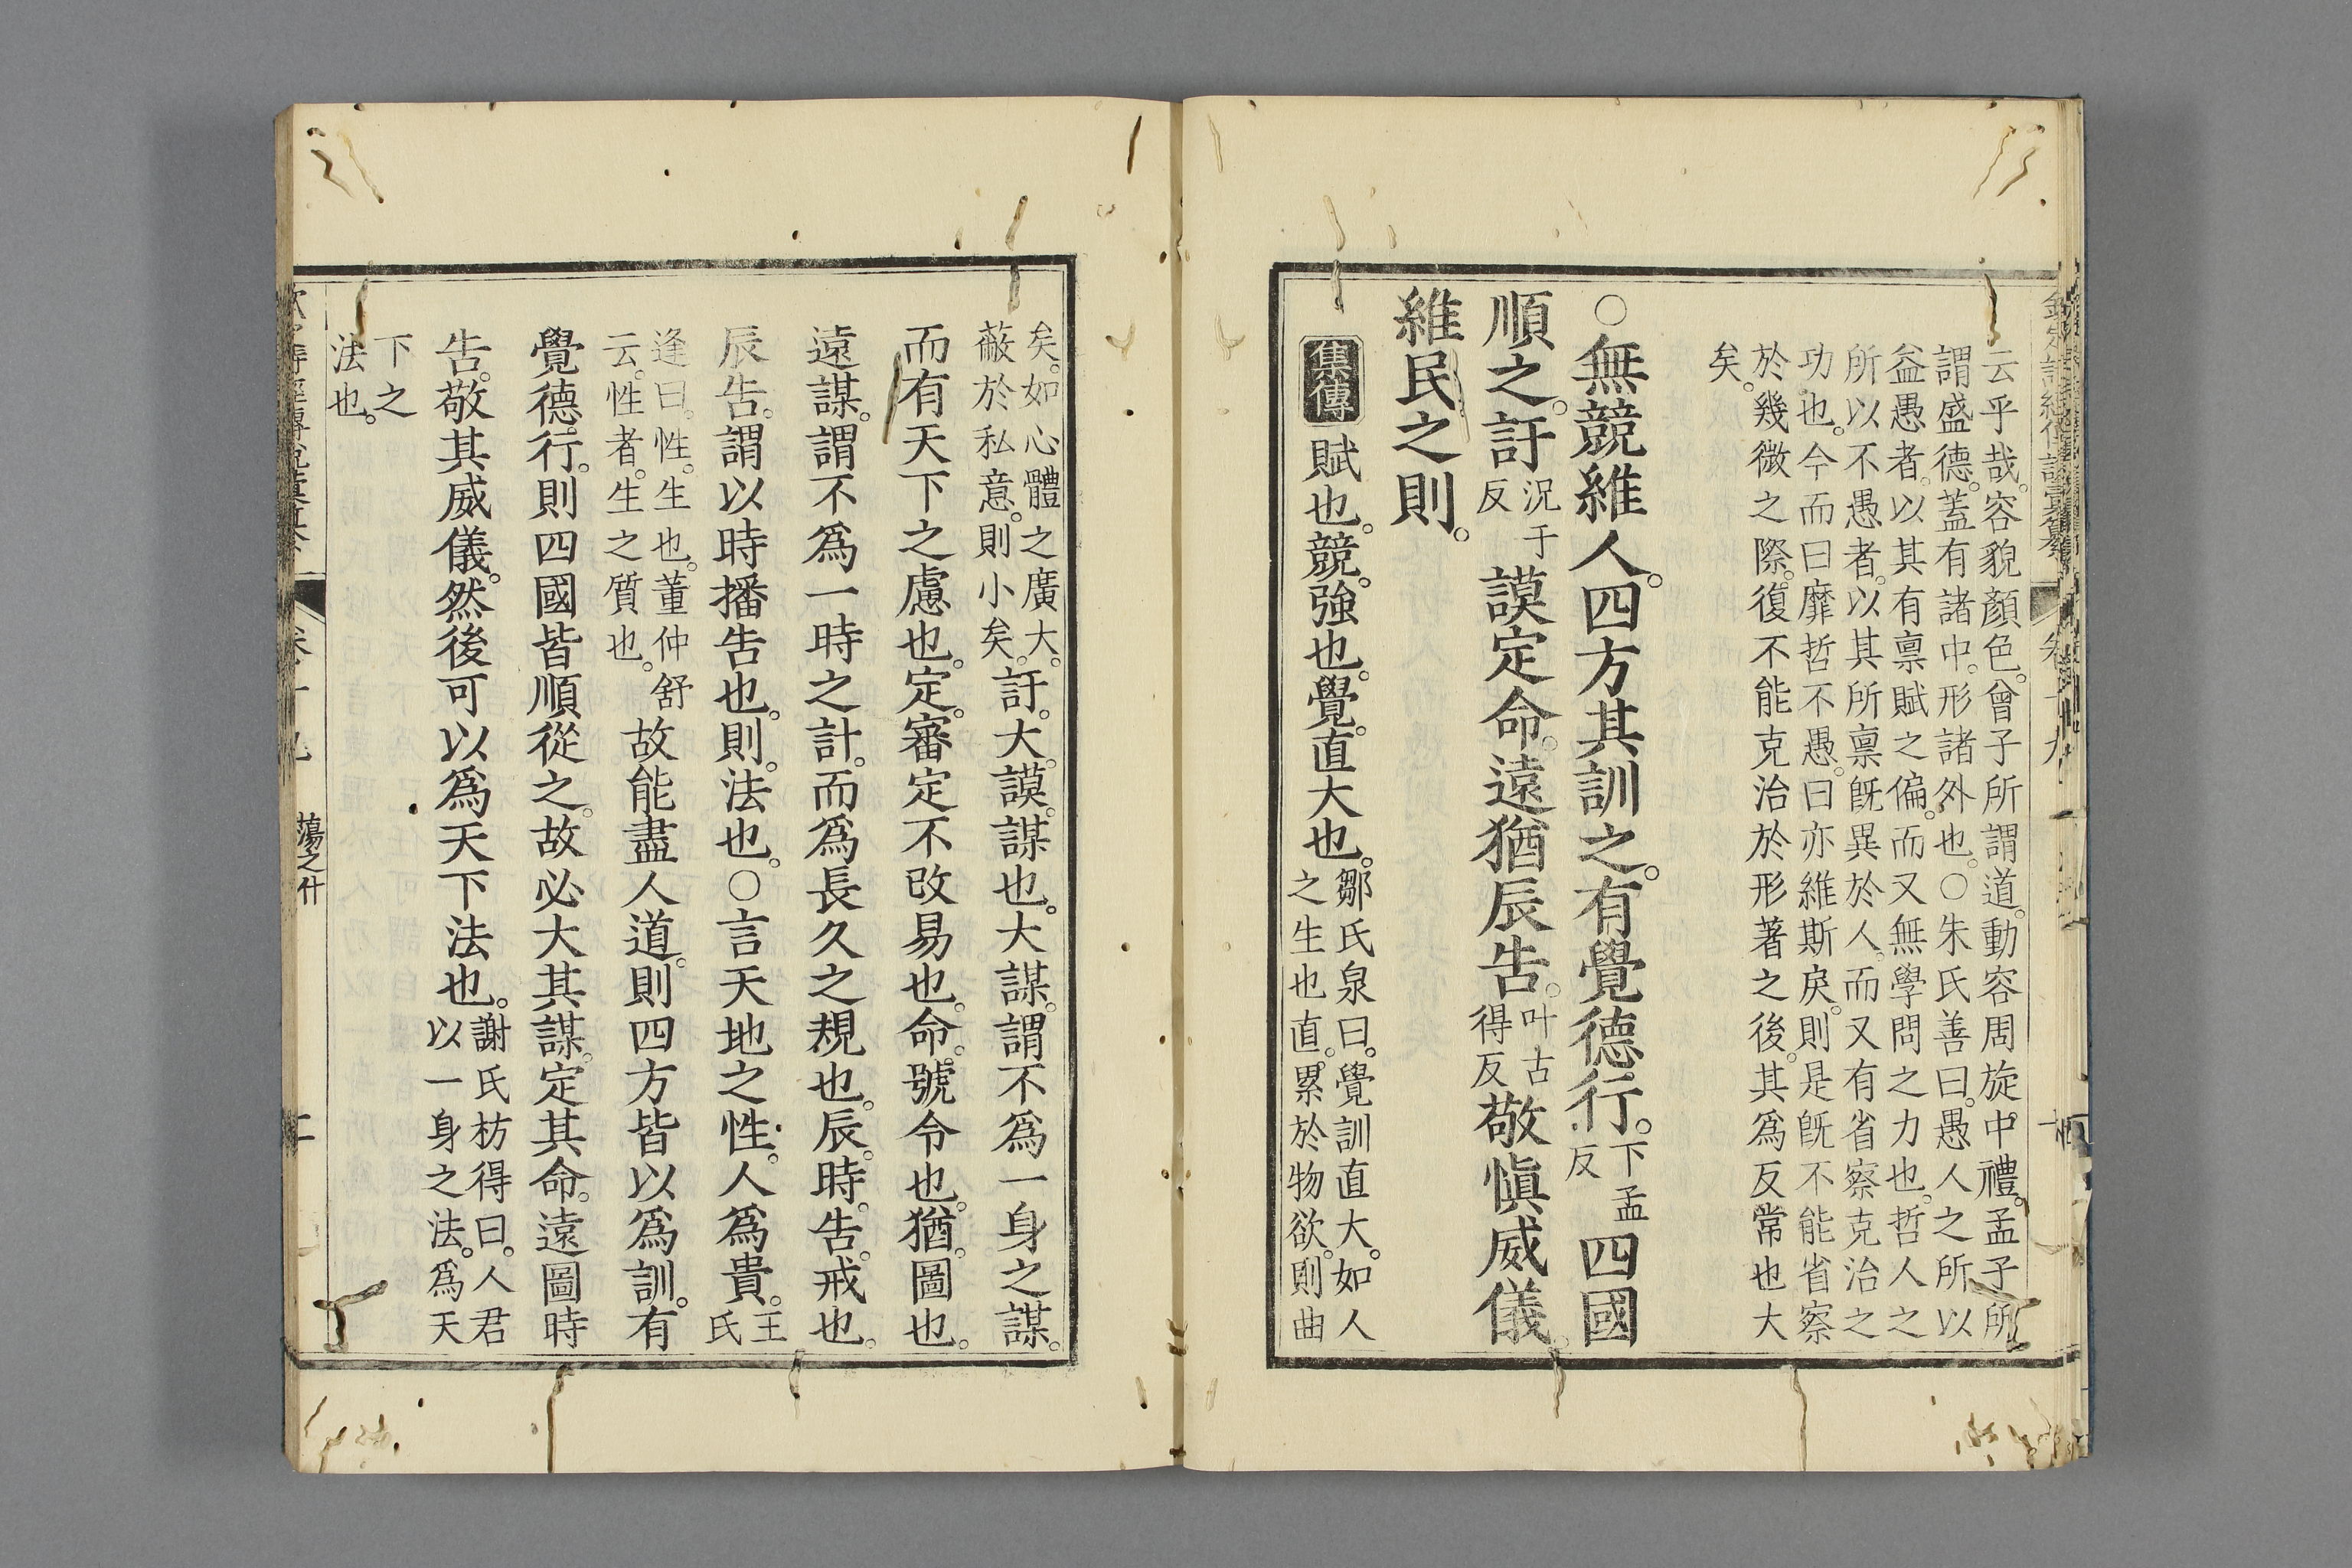 云乎哉。容貌顏色。曾子所謂道。動容周旋。中禮。孟子所
謂盛德。蓋有諸中。形諸外也。○朱氏善曰。愚人之所以
益愚者。以其有禀賦之偏。而又無學問之力也。哲人之
所以不愚者。以其所禀旣異於人。而又有省察克治之
功也。今而曰靡哲不愚。曰亦維斯戾。則是旣不能省察
於幾微之際。復不能克治於形著之後。其爲反常也大
矣。
○無競維人。四方其訓之。有覺德行。下孟反四國
順之。訏況于反謨定命。遠猶辰告。叶古得反敬愼威儀。
維民之則。
集傳 賦也。競。強也。覺。直大也。鄒氏泉曰。覺訓直大。如人
之生也直。累於物欲。則曲
矣。如心體之廣大。
蔽於私意。則小矣。訏。大。謨。謀也。大謀。謂不爲一身之謀。
而有天下之慮也。定。審定不改易也。命。號令也。猶。圖也。
遠謀。謂不爲一時之計。而爲長久之規也。辰。時。告。戒也。
辰告。謂以時播告也。則。法也。○言天地之性。人爲貴。王氏
逢曰。性。生也。董仲舒
云。性者。生之質也。故能盡人道。則四方皆以爲訓。有
覺德。行。則四國皆順從之。故必大其謀。定其命。遠圖時
告。敬其威儀。然後可以爲天下法也。謝氏枋得曰。人君
以一身之法。爲天
下之
法也。
蕩之什